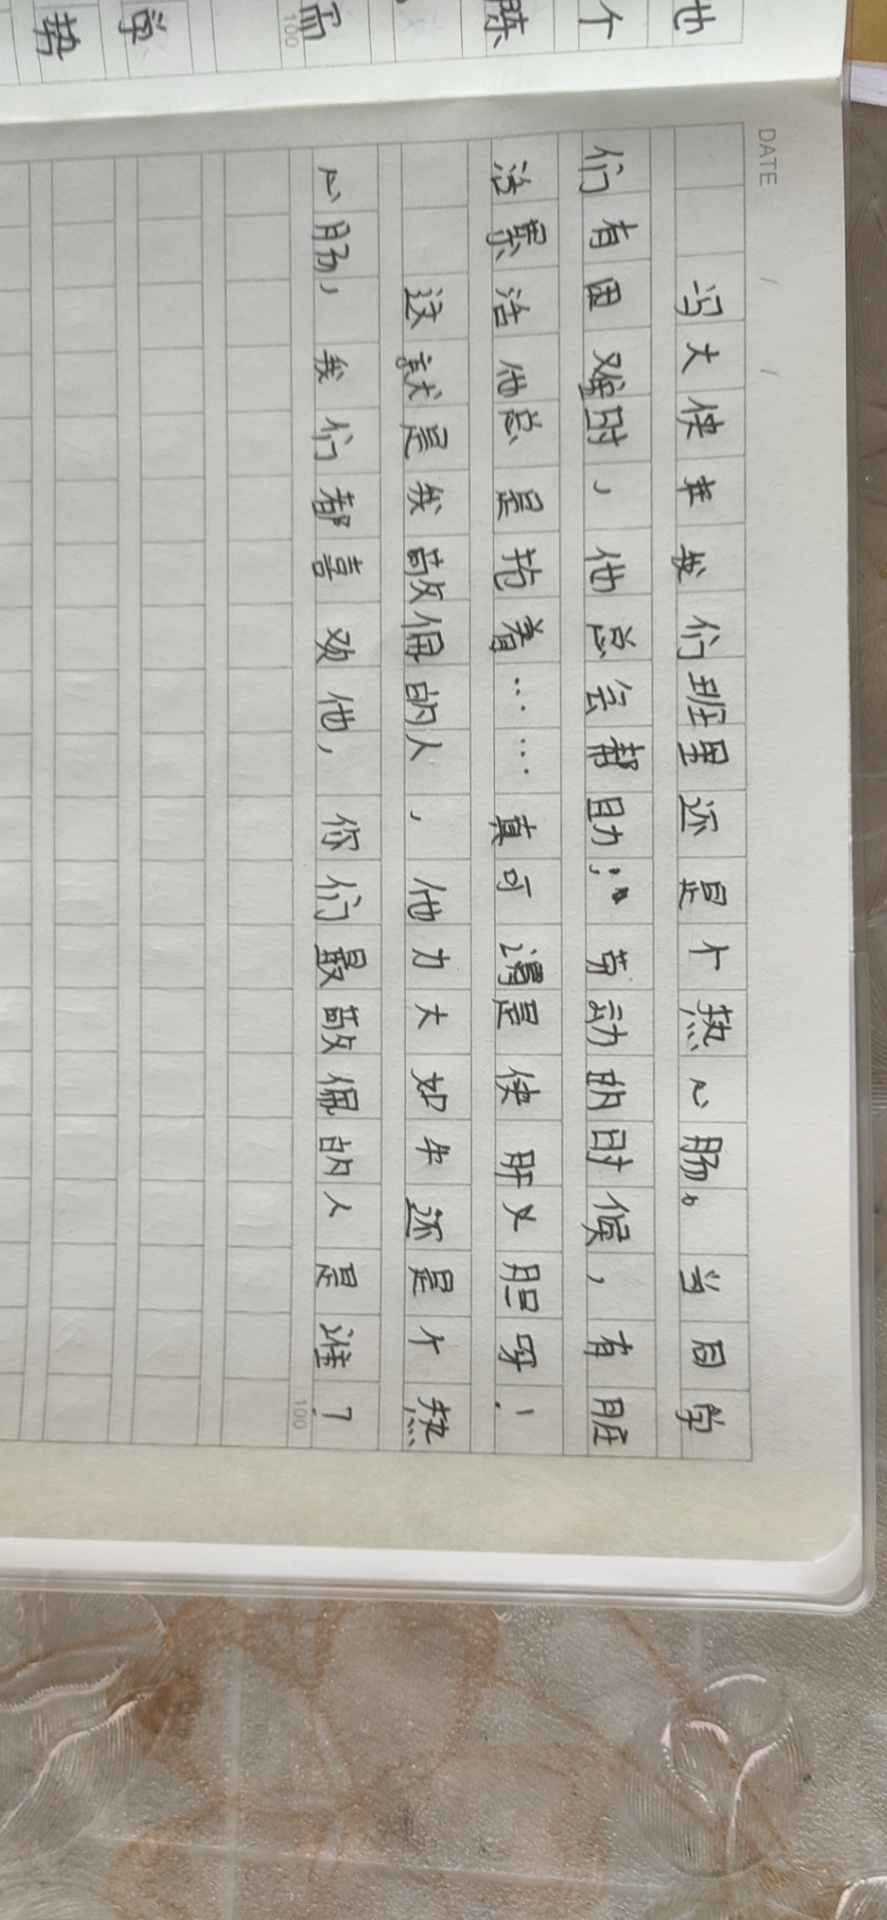 DATE / /
冯大侠在我们班里还是个热心肠。当同学
们有困难时，他总会帮助；劳动的时候，有脏
活累活他总是抢着……真可谓是侠肝义胆呀！
这就是我敬佩的人，他力大如牛还是个热
心肠，我们都喜欢他，你们最敬佩的人是谁？
100
也
个
而
100
学
势